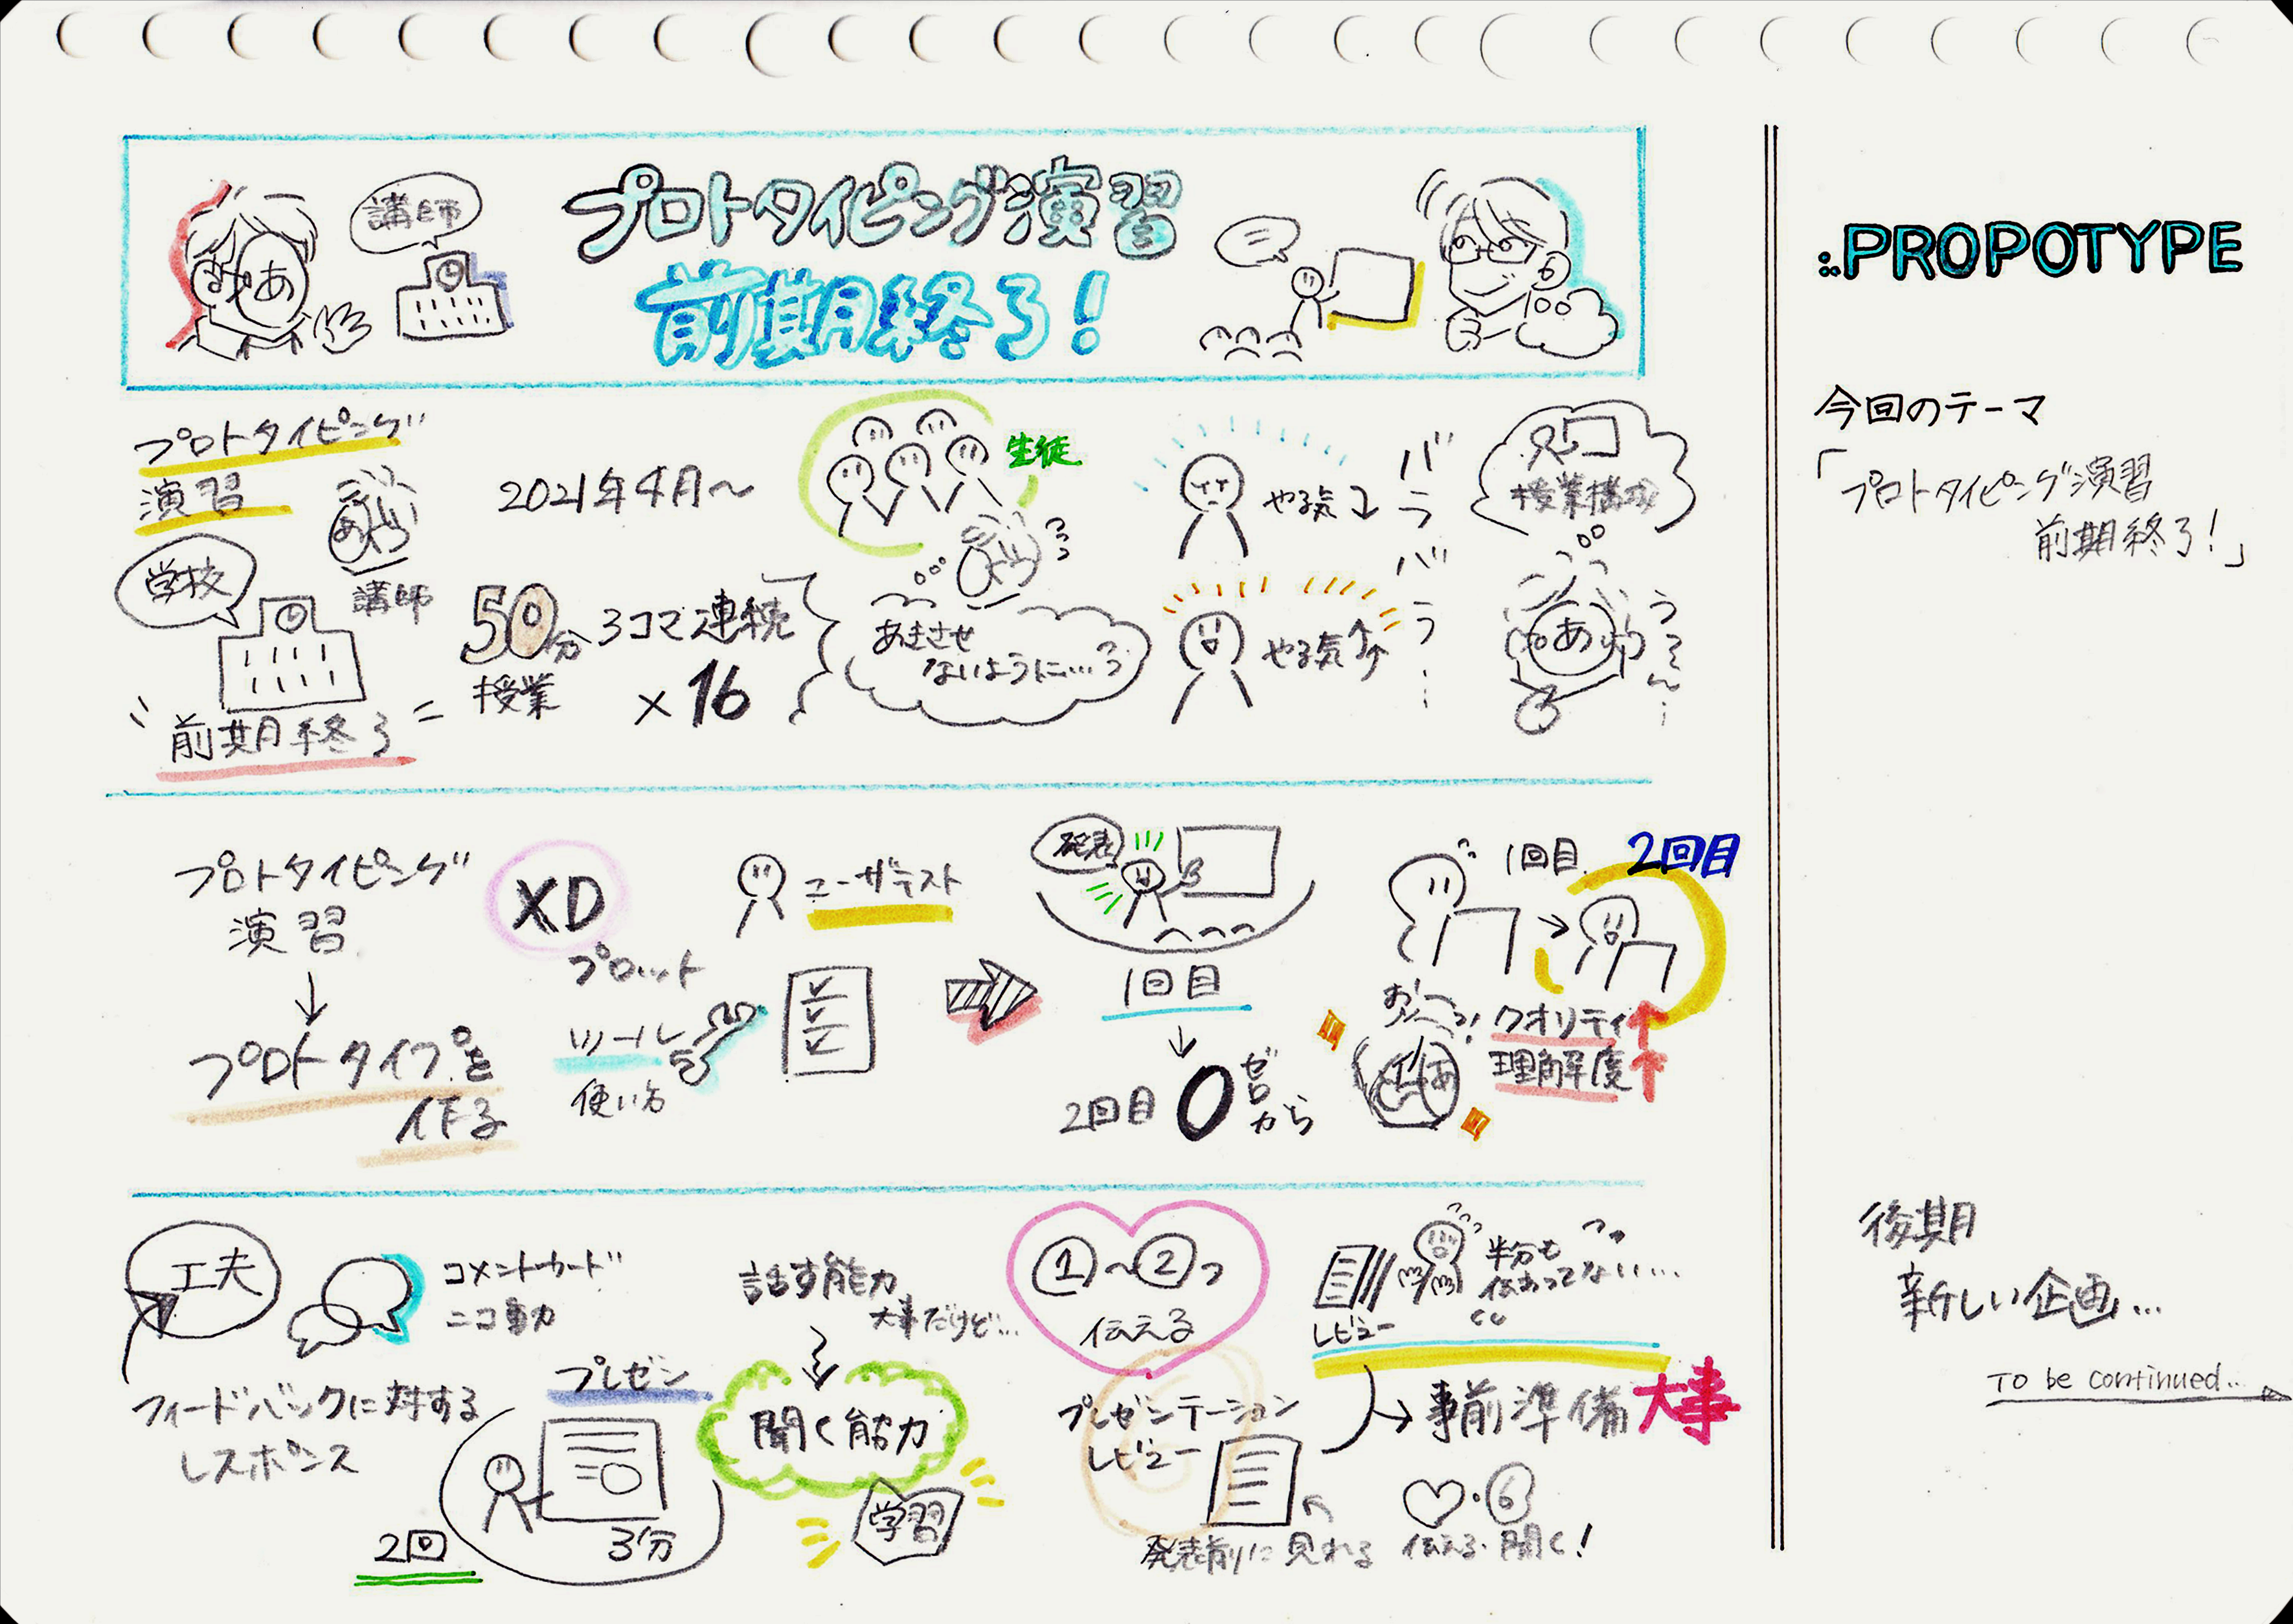 講師
プロトタイピング演習
前期終了!
みやあ
:.PROPOTYPE
今回のテーマ
「プロトタイピング演習
前期終了!」
プロトタイピング
演習
講師
学校
前期終了
2021年4月〜
50分
授業
3コマ連続
×16
生徒
あきさせ
ないように…
やる気↓
やる気↑
バラバラ…
授業構成
う〜ん…
プロトタイピング
演習
↓
プロトタイプを
作る
XD
プロット
ツール
使い方
ユーザテスト
発表
1回目
↓
2回目 0 ゼロから
1回目
2回目
おー!
クオリティ↑
理解度↑
工夫
コメントカード
ニコ動
フィードバックに対する
レスポンス
プレゼン
2回
3分
話す能力
大事だけど…
聞く能力
学習
①〜②つ
伝える
プレゼンテーション
レビュー
発表前に見れる
レビュー
半分も
伝わってない…
→事前準備大事
伝える・聞く!
後期
新しい企画…
To be continued...